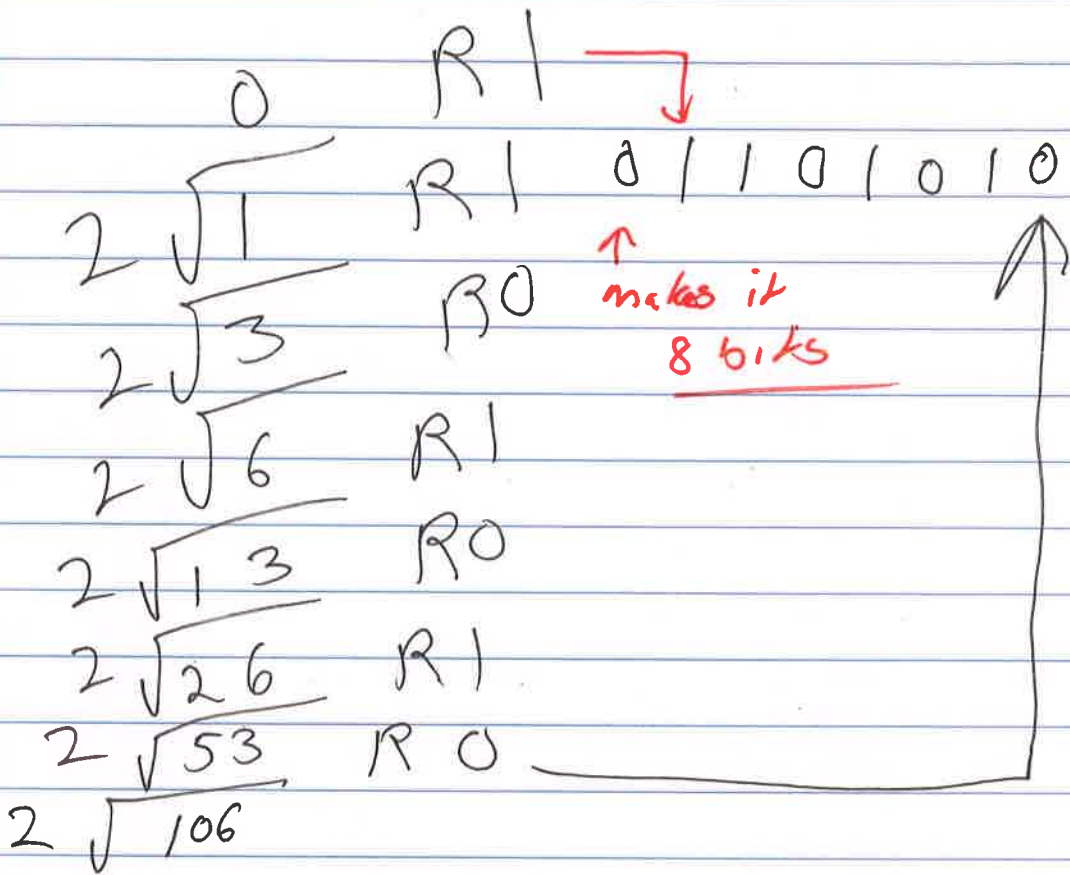 R 1
0
2 √1 R 1 0 1 1 0 1 0 1 0
2 √3 R0 makes it
8 bits
2 √6 R 1
2 √13 R0
2 √26 R 1
2 √53 R 0
2 √106